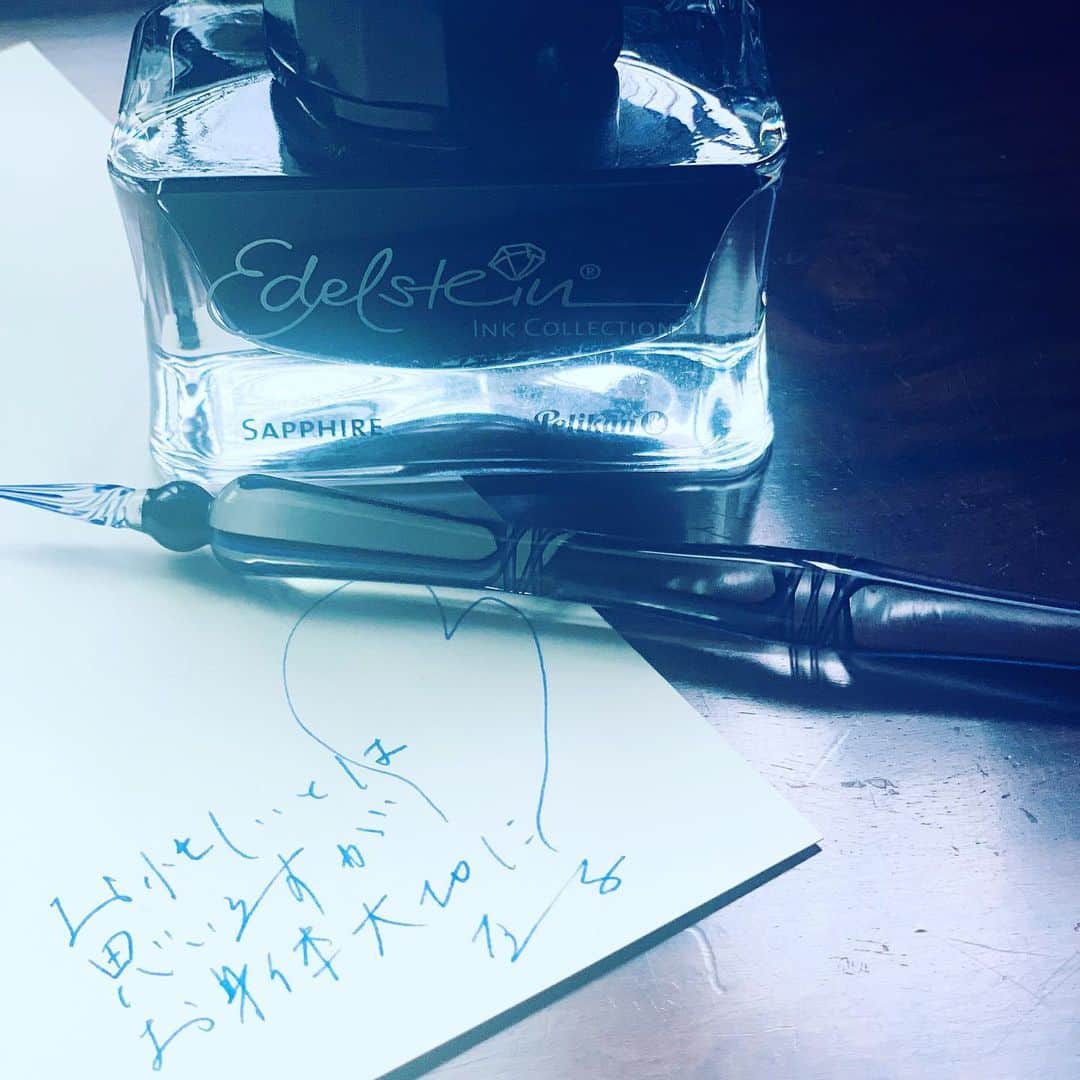 Edelstein®
INK COLLECTION
SAPPHIRE
Pelikan
お忙しいとは
思いますが
お身体大切に